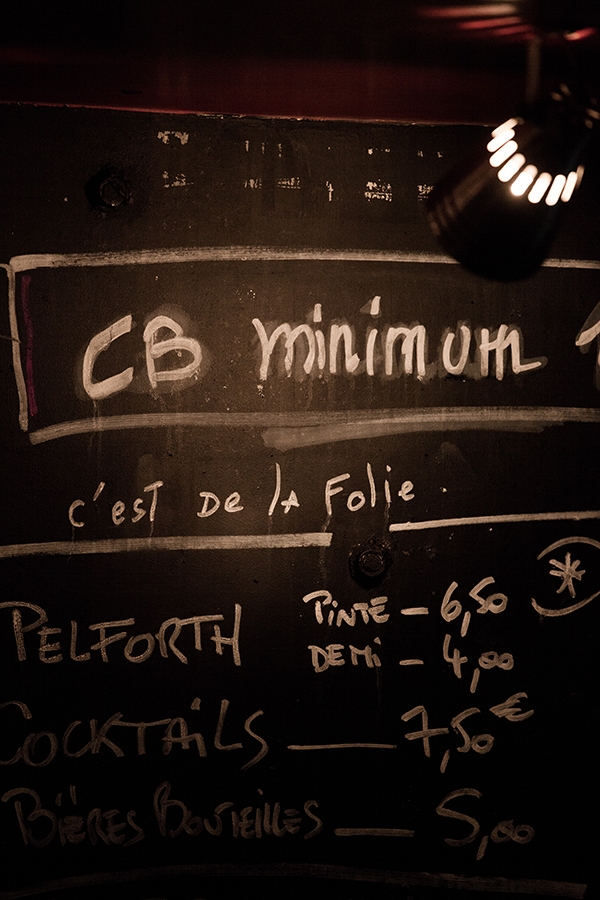 CB minimum 1
c'est De la Folie
PELFORTH PiNTE — 6,50 (*)
DEMi — 4,00
COCKTAiLS — 7,50 €
BiÈRES BOUTEiLLES — 5,00